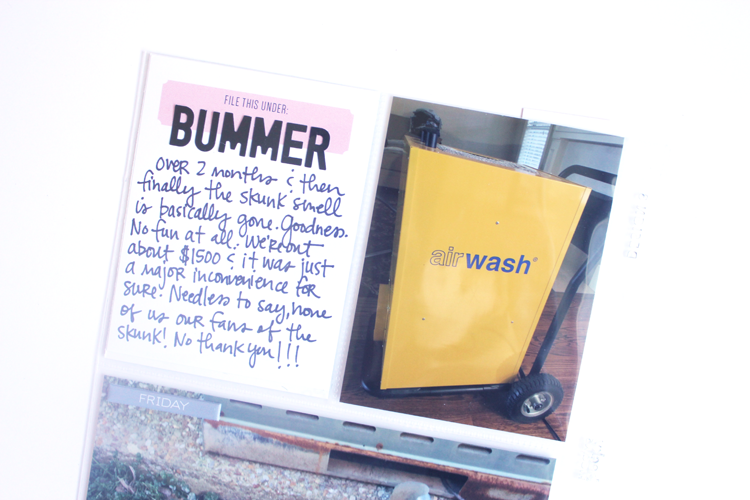 FILE THIS UNDER:
BUMMER
Over 2 months & then
finally the skunk smell
is basically gone. Goodness.
No fun at all. We're out
about $1500 & it was just
a major inconvenience for
sure! Needless to say, none
of us our fans of the
skunk! No thank you!!!
airwash®
FRIDAY